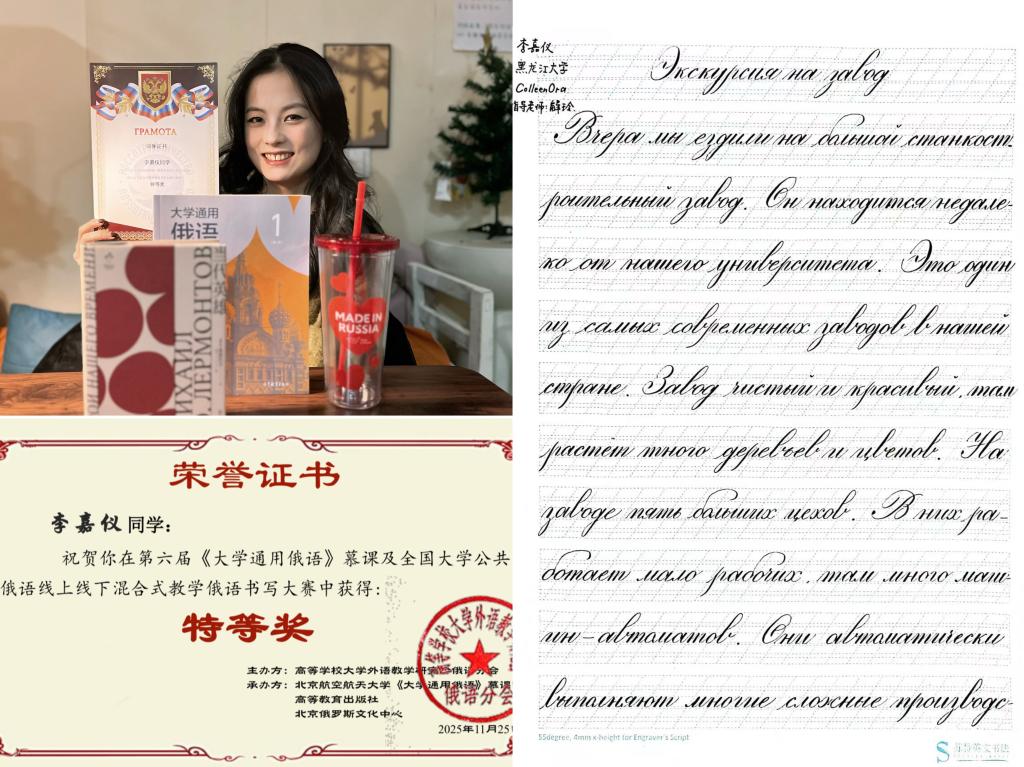 ГРАМОТА
荣誉证书
李嘉仪同学
特等奖
大学通用
俄语
1
当代英雄
ОЙ НАШЕГО ВРЕМЕНИ
ИХАИЛ
ЛЕРМОНТОВ
MADE IN
RUSSIA
荣誉证书
李嘉仪 同学：
祝贺你在第六届《大学通用俄语》慕课及全国大学公共
俄语线上线下混合式教学俄语书写大赛中获得：
特等奖
主办方：高等学校大学外语教学研究会俄语分会
承办方：北京航空航天大学《大学通用俄语》慕课
高等教育出版社
北京俄罗斯文化中心
2025年11月25
高等学校大学外语教学
俄语分会
李嘉仪
黑龙江大学
ColleenOra
指导老师：薛玲
Экскурсия на завод
Вчера мы ездили на большой станкост-
роительный завод. Он находится недале-
ко от нашего университета. Это один
из самых современных заводов в нашей
стране. Завод чистый и красивый, там
растёт много деревьев и цветов. На
заводе пять больших цехов. В них ра-
ботает мало рабочих, там много маш-
ин-автоматов. Они автоматически
выполняют многие сложные производс-
55degree, 4mm x-height for Engraver's Script
英文书法